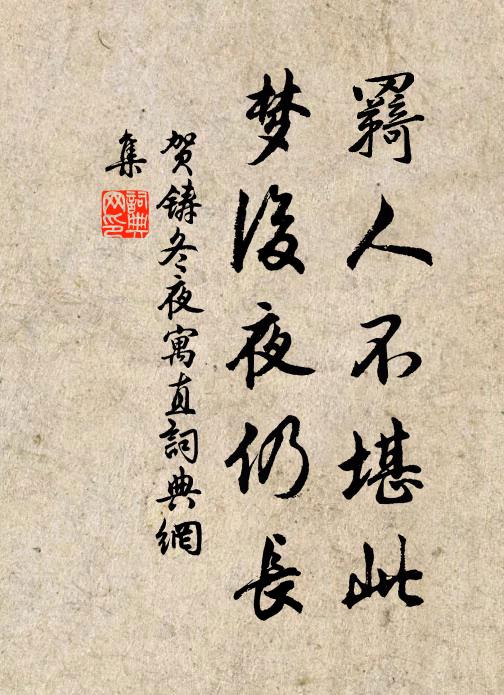 羇人不堪此
梦後夜仍長
贺鑄冬夜寓直詞典網
集
詞典
网印